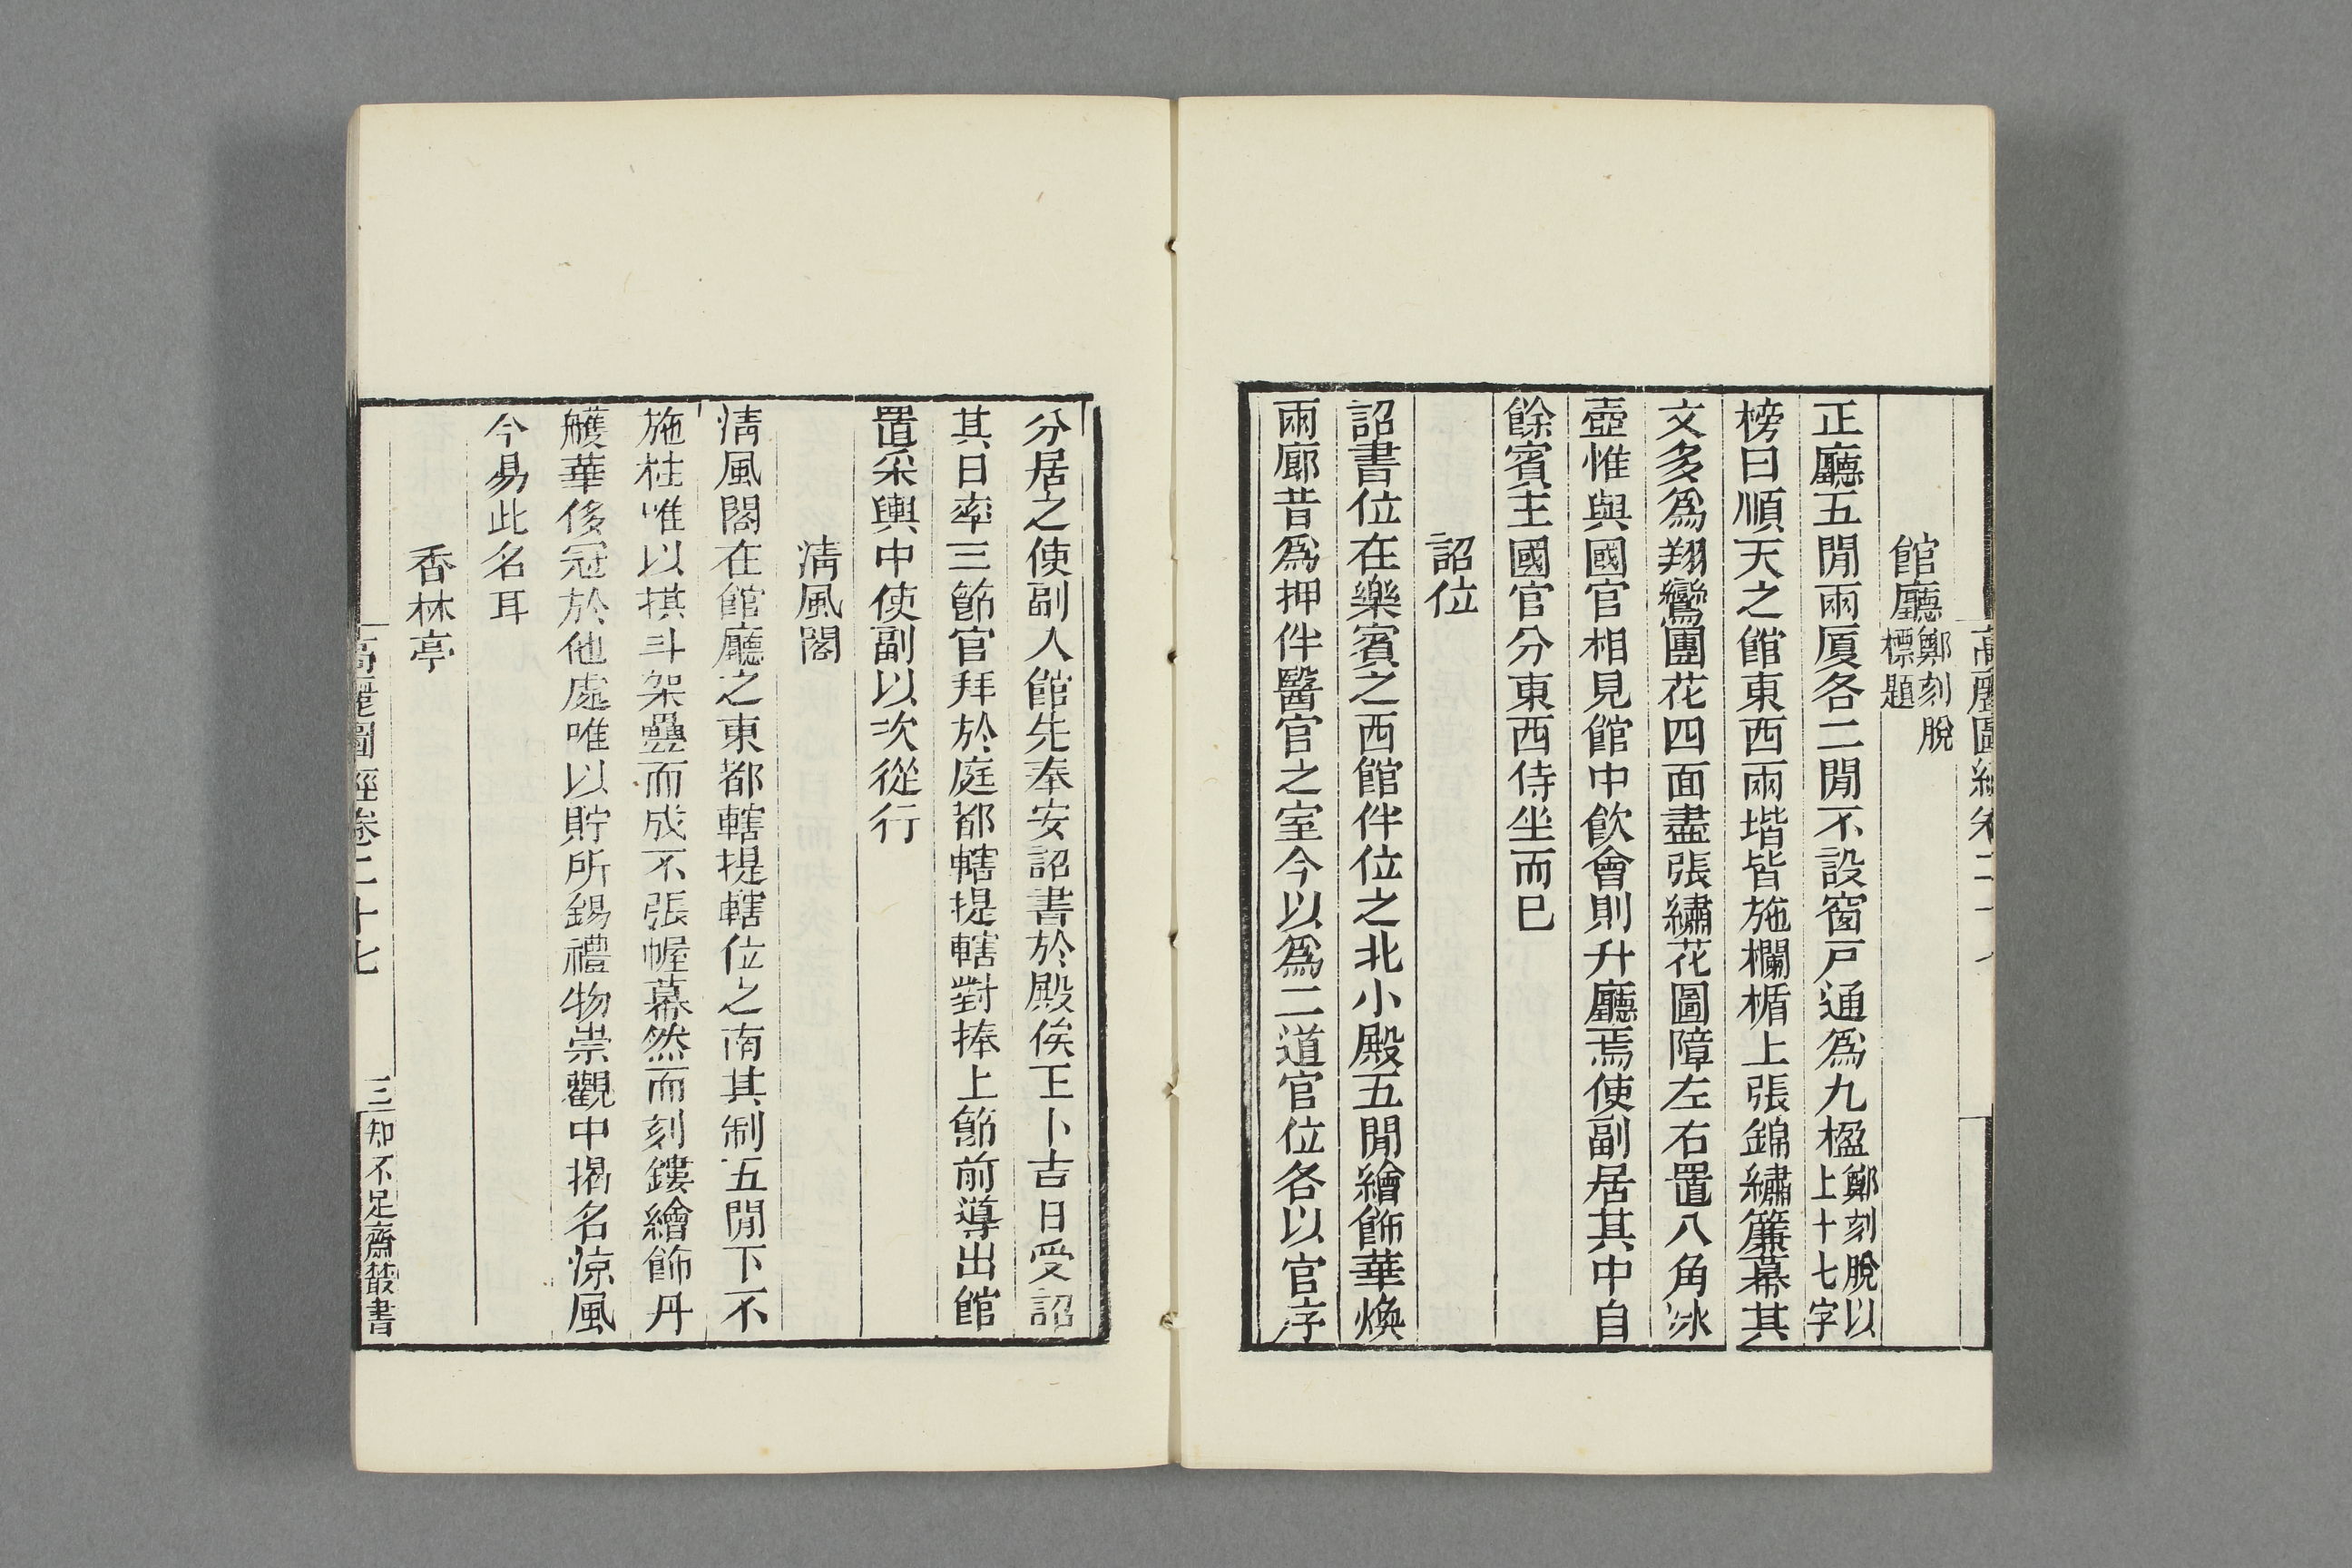 高麗圖經卷二十七
館廳鄭刻脫標題
正廳五閒兩厦各二閒不設窗戸通爲九楹鄭刻脫以上十七字
榜曰順天之館東西兩堦皆施欄楯上張錦繡簾幕其
文多爲翔鸞團花四面盡張繡花圖障左右置八角冰
壺惟與國官相見館中飮會則升廳焉使副居其中自
餘賓主國官分東西侍坐而已
詔位
詔書位在樂賓之西館伴位之北小殿五閒繪飾華煥
兩廊昔爲押伴醫官之室今以爲二道官位各以官序
分居之使副入館先奉安詔書於殿俟王卜吉日受詔
其日率三節官拜於庭都轄提轄對捧上節前導出館
置采輿中使副以次從行
淸風閣
淸風閣在館廳之東都轄提轄位之南其制五閒下不
施柱唯以拱斗架疊而成不張幄幕然而刻鏤繪飾丹
雘華侈冠於他處唯以貯所錫禮物崇觀中揭名涼風
今易此名耳
香林亭
高麗圖經卷二十七
三
知不足齋叢書